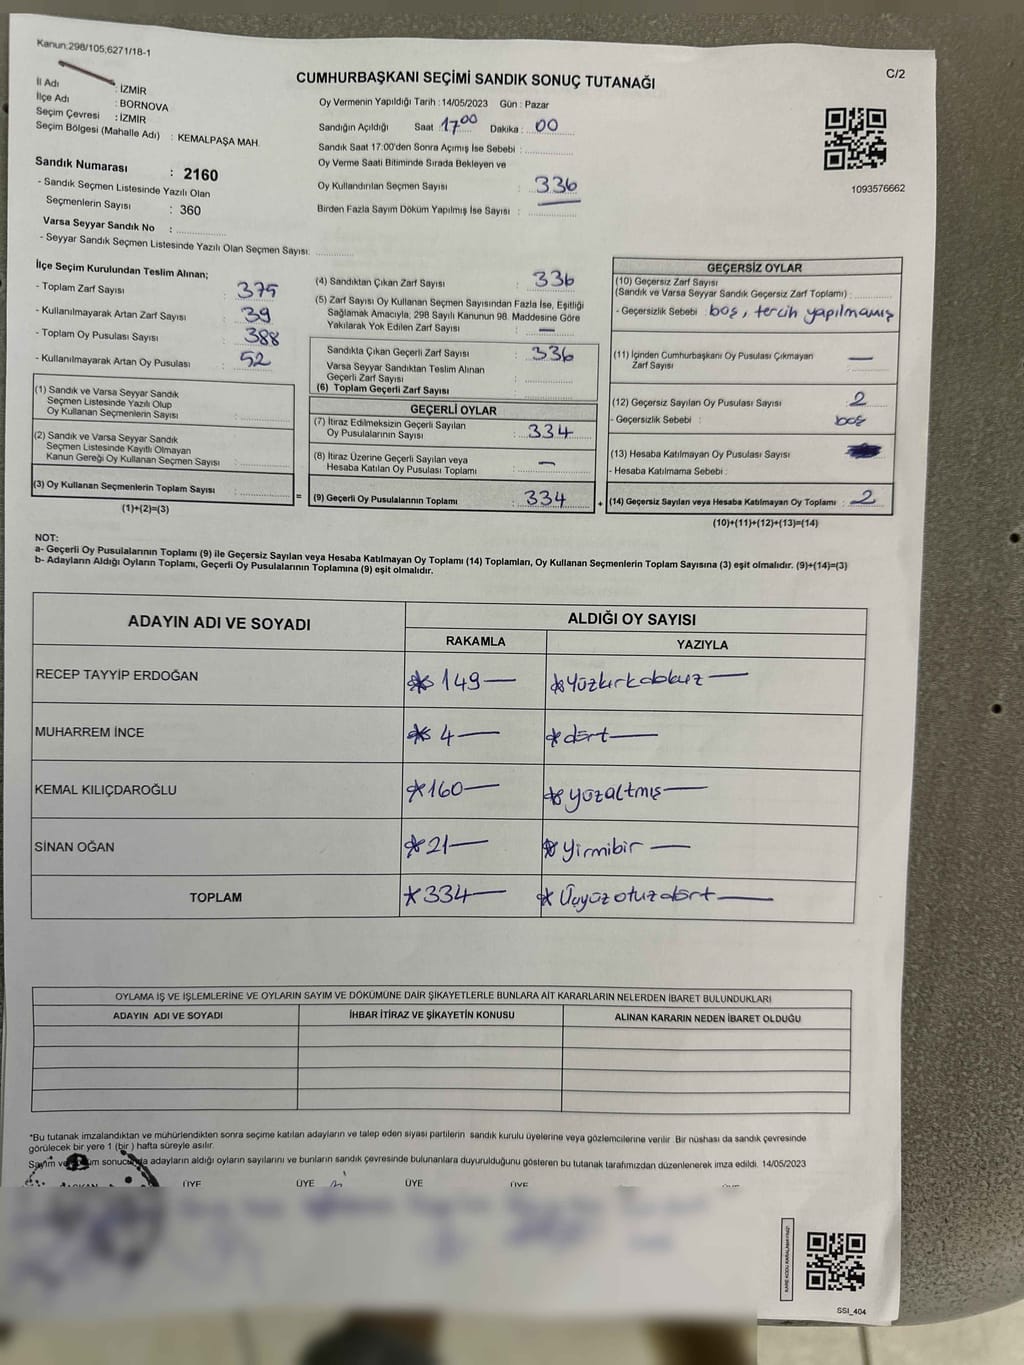 Kanun:298/105,6271/18-1
C/2
CUMHURBAŞKANI SEÇİMİ SANDIK SONUÇ TUTANAĞI
İl Adı : İZMİR
İlçe Adı : BORNOVA
Seçim Çevresi : İZMİR
Seçim Bölgesi (Mahalle Adı) : KEMALPAŞA MAH.
Sandık Numarası : 2160
- Sandık Seçmen Listesinde Yazılı Olan
Seçmenlerin Sayısı : 360
Varsa Seyyar Sandık No :
- Seyyar Sandık Seçmen Listesinde Yazılı Olan Seçmen Sayısı:
Oy Vermenin Yapıldığı Tarih : 14/05/2023 Gün : Pazar
Sandığın Açıldığı Saat 17:00 Dakika : 00
Sandık Saat 17:00'den Sonra Açımış İse Sebebi :
Oy Verme Saati Bitiminde Sırada Bekleyen ve
Oy Kullandırılan Seçmen Sayısı : 336
Birden Fazla Sayım Döküm Yapılmış İse Sayısı :
1093576662
İlçe Seçim Kurulundan Teslim Alınan;
- Toplam Zarf Sayısı : 375
- Kullanılmayarak Artan Zarf Sayısı : 39
- Toplam Oy Pusulası Sayısı : 388
- Kullanılmayarak Artan Oy Pusulası : 52
(1) Sandık ve Varsa Seyyar Sandık
Seçmen Listesinde Yazılı Olup
Oy Kullanan Seçmenlerin Sayısı :
(2) Sandık ve Varsa Seyyar Sandık
Seçmen Listesinde Kayıtlı Olmayan
Kanun Gereği Oy Kullanan Seçmen Sayısı :
(3) Oy Kullanan Seçmenlerin Toplam Sayısı :
(1)+(2)=(3)
(4) Sandıktan Çıkan Zarf Sayısı : 336
(5) Zarf Sayısı Oy Kullanan Seçmen Sayısından Fazla İse, Eşitliği
Sağlamak Amacıyla, 298 Sayılı Kanunun 98. Maddesine Göre
Yakılarak Yok Edilen Zarf Sayısı : —
Sandıkta Çıkan Geçerli Zarf Sayısı : 336
Varsa Seyyar Sandıktan Teslim Alınan
Geçerli Zarf Sayısı :
(6) Toplam Geçerli Zarf Sayısı :
GEÇERLİ OYLAR
(7) İtiraz Edilmeksizin Geçerli Sayılan
Oy Pusulalarının Sayısı : 334
(8) İtiraz Üzerine Geçerli Sayılan veya
Hesaba Katılan Oy Pusulası Toplamı : —
= (9) Geçerli Oy Pusulalarının Toplamı : 334
GEÇERSİZ OYLAR
(10) Geçersiz Zarf Sayısı
(Sandık ve Varsa Seyyar Sandık Geçersiz Zarf Toplamı) :
- Geçersizlik Sebebi : boş, tercih yapılmamış
(11) İçinden Cumhurbaşkanı Oy Pusulası Çıkmayan
Zarf Sayısı : —
(12) Geçersiz Sayılan Oy Pusulası Sayısı : 2
- Geçersizlik Sebebi : boş
(13) Hesaba Katılmayan Oy Pusulası Sayısı
- Hesaba Katılmama Sebebi :
+ (14) Geçersiz Sayılan veya Hesaba Katılmayan Oy Toplamı : 2
(10)+(11)+(12)+(13)=(14)
NOT:
a- Geçerli Oy Pusulalarının Toplamı (9) ile Geçersiz Sayılan veya Hesaba Katılmayan Oy Toplamı (14) Toplamları, Oy Kullanan Seçmenlerin Toplam Sayısına (3) eşit olmalıdır. (9)+(14)=(3)
b- Adayların Aldığı Oyların Toplamı, Geçerli Oy Pusulalarının Toplamına (9) eşit olmalıdır.
ADAYIN ADI VE SOYADI
ALDIĞI OY SAYISI
RAKAMLA YAZIYLA
RECEP TAYYİP ERDOĞAN * 149— * Yüzkırkdokuz—
MUHARREM İNCE * 4— * dört—
KEMAL KILIÇDAROĞLU * 160— * yüzaltmış—
SİNAN OĞAN * 21— * yirmibir—
TOPLAM * 334— * Üçyüzotuzdört—
OYLAMA İŞ VE İŞLEMLERİNE VE OYLARIN SAYIM VE DÖKÜMÜNE DAİR ŞİKAYETLERLE BUNLARA AİT KARARLARIN NELERDEN İBARET BULUNDUKLARI
ADAYIN ADI VE SOYADI İHBAR İTİRAZ VE ŞİKAYETİN KONUSU ALINAN KARARIN NEDEN İBARET OLDUĞU
*Bu tutanak imzalandıktan ve mühürlendikten sonra seçime katılan adayların ve talep eden siyasi partilerin sandık kurulu üyelerine veya gözlemcilerine verilir. Bir nüshası da sandık çevresinde
görülecek bir yere 1 (bir ) hafta süreyle asılır.
Sayım ve sonucunda adayların aldığı oyların sayılarını ve bunların sandık çevresinde bulunanlara duyurulduğunu gösteren bu tutanak tarafımızdan düzenlenerek imza edildi. 14/05/2023
ÜYE ÜYE ÜYE ÜYE
SSI_404